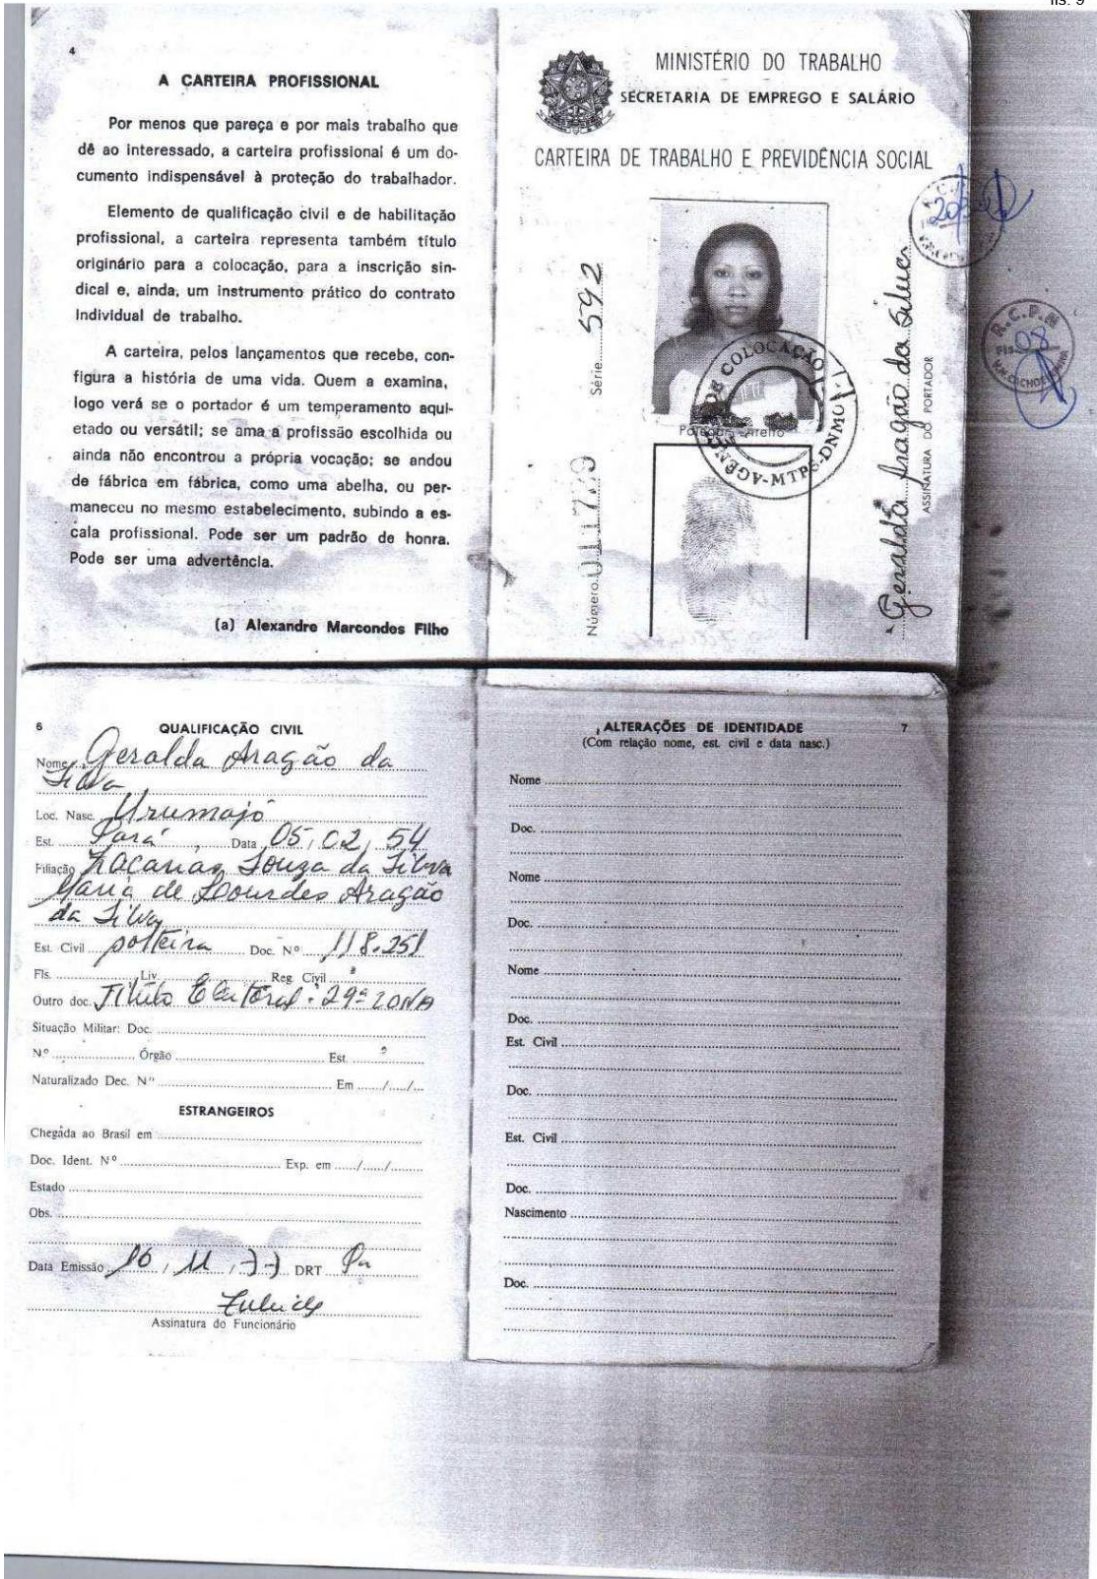 fls. 9
4
A CARTEIRA PROFISSIONAL
Por menos que pareça e por mais trabalho que
dê ao interessado, a carteira profissional é um do-
cumento indispensável à proteção do trabalhador.
Elemento de qualificação civil e de habilitação
profissional, a carteira representa também título
originário para a colocação, para a inscrição sin-
dical e, ainda, um instrumento prático do contrato
individual de trabalho.
A carteira, pelos lançamentos que recebe, con-
figura a história de uma vida. Quem a examina,
logo verá se o portador é um temperamento aqui-
etado ou versátil; se ama a profissão escolhida ou
ainda não encontrou a própria vocação; se andou
de fábrica em fábrica, como uma abelha, ou per-
maneceu no mesmo estabelecimento, subindo a es-
cala profissional. Pode ser um padrão de honra.
Pode ser uma advertência.
(a) Alexandre Marcondes Filho
MINISTÉRIO DO TRABALHO
SECRETARIA DE EMPREGO E SALÁRIO
CARTEIRA DE TRABALHO E PREVIDÊNCIA SOCIAL
Número 01179 Série 592
DE COLOCAÇÃO
AGÊN MTPS-DNMO
Geralda Aragão da Silva
ASSINATURA DO PORTADOR
R.C.P.N
Fls. 08
6
QUALIFICAÇÃO CIVIL
Nome Geralda Aragão da
Silva
Loc. Nasc. Urumajó
Est. Pará Data 05, 02, 54
Filiação Zacarias Souza da Silva
Maria de Lourdes Aragão
da Silva
Est. Civil solteira Doc. Nº 118.251
Fls. Liv. Reg. Civil
Outro doc. Título Eleitoral: 29ª ZONA
Situação Militar: Doc.
Nº Órgão Est.
Naturalizado Dec. Nº Em / /
ESTRANGEIROS
Chegada ao Brasil em
Doc. Ident. Nº Exp. em / /
Estado
Obs.
Data Emissão 16, 11, 77 DRT Pa
Assinatura do Funcionário
7
ALTERAÇÕES DE IDENTIDADE
(Com relação nome, est. civil e data nasc.)
Nome
Doc.
Nome
Doc.
Nome
Doc.
Est. Civil
Doc.
Est. Civil
Doc.
Nascimento
Doc.